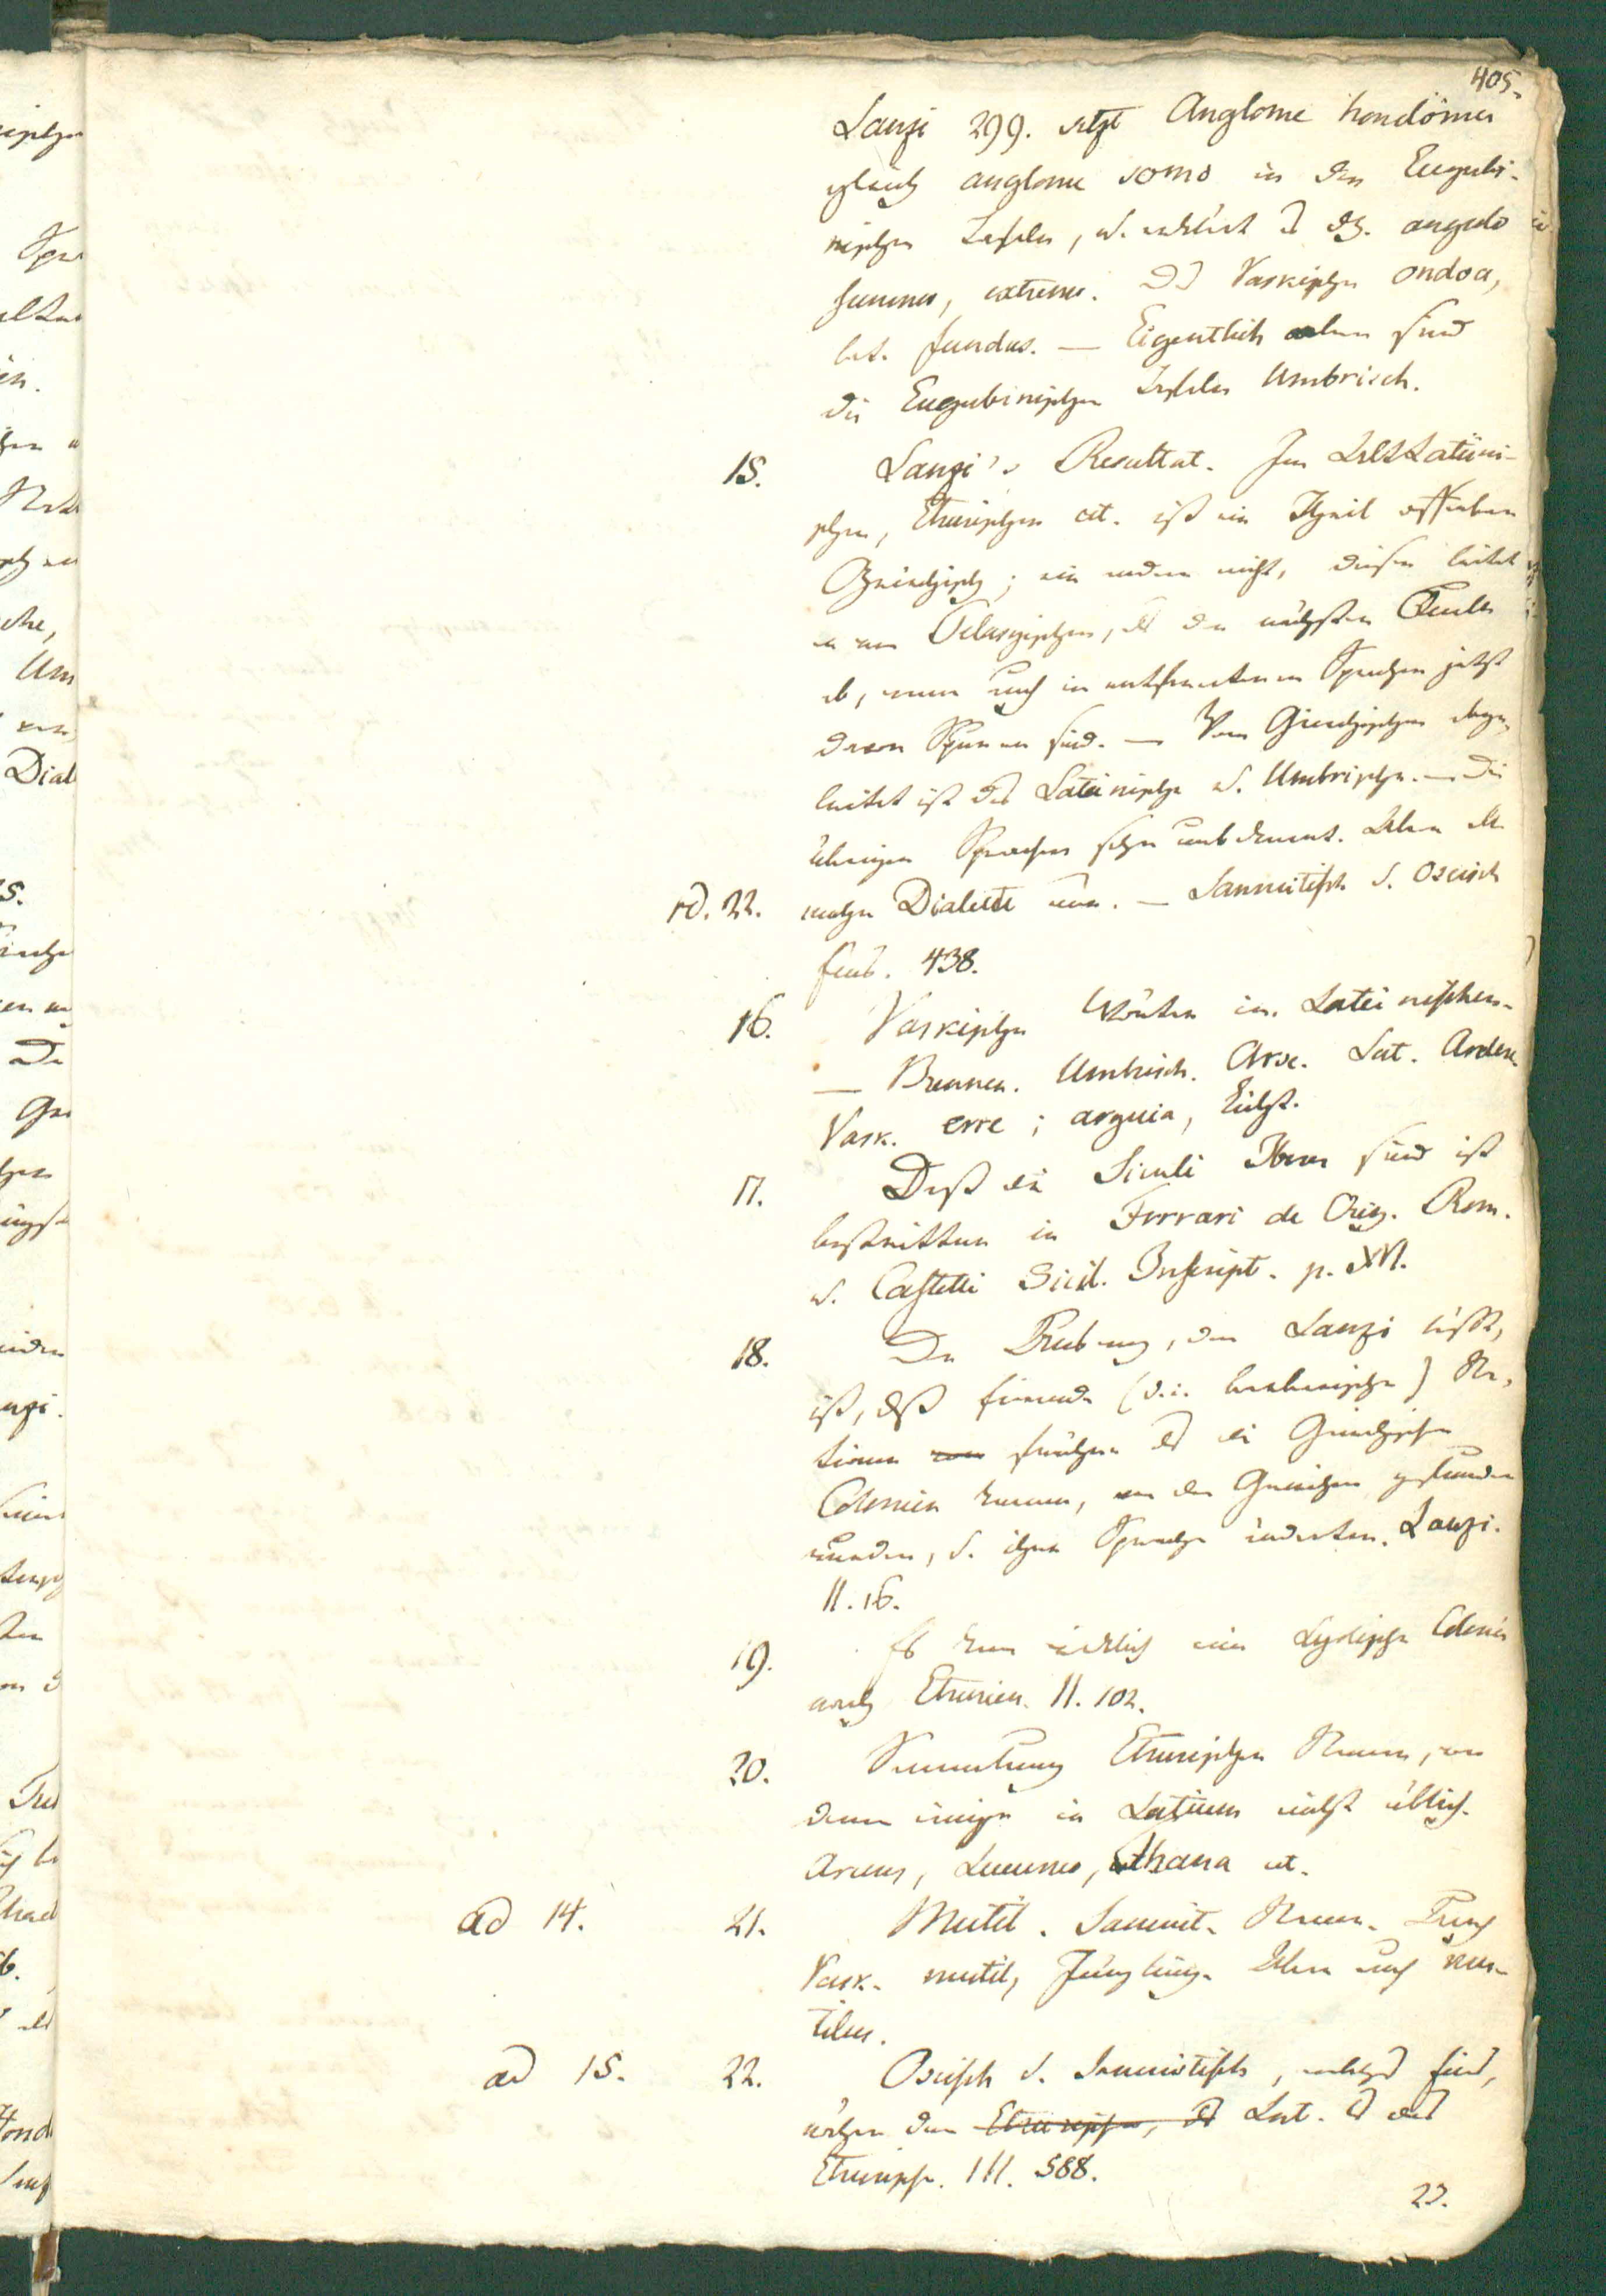 405.
Lanzi 299. setzt Anglome hondomu
gleich anglome somo in den Eugubi-
nischen Tafeln, u. erklärt es dh. angulo
summo, extremo. Das Vaskische ondoa,
bed. fundus. — Eigentlich aber sind
die Eugubinischen Tafeln Umbrisch.
15. Lanzi's Resultat. Im AltLatini-
schen, Etruskischen cet. ist ein Theil offenbar
Griechisch; ein andrer nicht, diesen leitet
er vom Pelasgischen, als der nächsten Quelle
ab, wenn auch in entfernteren Sprachen jetzt
davon Spuren sind. — Vom Griechischen abge-
leitet ist das Lateinische u. Umbrische. — Die
übrigen Sprachen sehr unbekannt. Aber alle
vd. 22. machen Dialecte aus. — Samnitisch u. Oscisch
sub. 438.
16. Vaskische Wörter im Lateinischen.
— Brennen. Umbrisch. Arse. Lat. Ardere
Vask. erre; arguia, Licht.
17. Dass die Siculi Iberer sind ist
bestritten in Ferrari de Orig. Rom.
u. Castelli Sicil. Inscript. p. XVI.
18. Der Ursprung, den Lanzi läßt,
ist, dass fremde (d.i. barbarische) Na-
tionen früher als die Griechischen
Colonien kamen, von den Griechen gefunden
wurden, u. ihre Sprache änderten. Lanzi.
II. 16.
19. Es kam wirklich eine Lydische Colonie
nach Etrurien. II. 102.
20. Sammlung Etruskischer Namen, von
denen einige in Latium nicht üblich.
Aruns, Lucumo, Thana cet.
ad 14. 21. Mutil. Samnit. Name. Auch
Vask. mutil, Jüngling. Aber auch mu-
tilus.
ad 15. 22. Oscisch u. Samnitisch, welches sind,
näher dem Etruskischen, als Lat. als das
Etruskische. III. 588.
23.